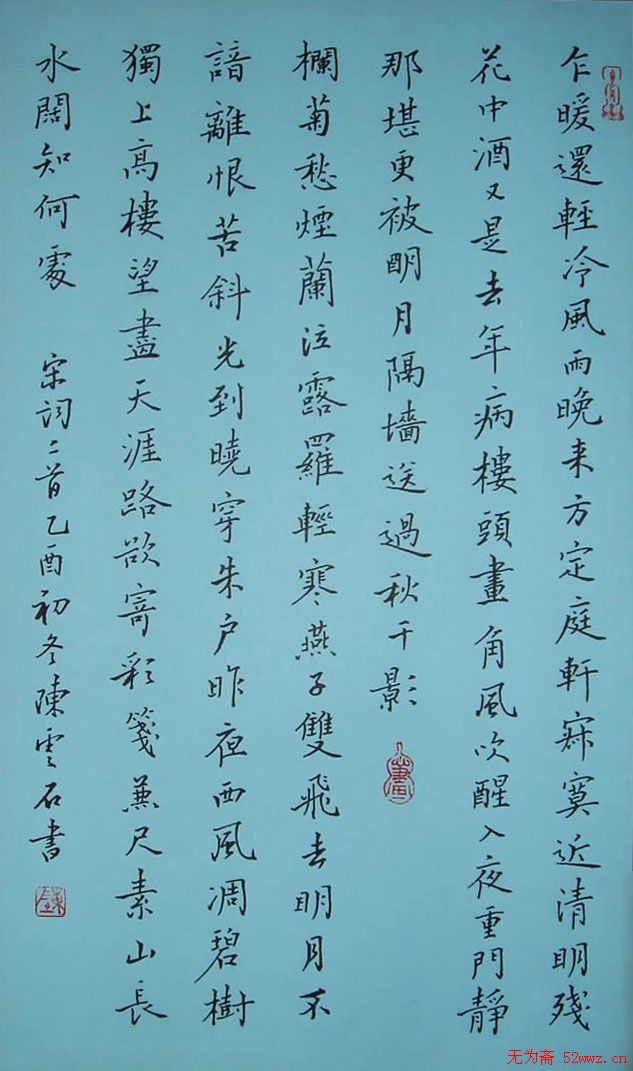 乍暖還輕冷風雨晚来方定庭軒寂寞近清明残
花中酒又是去年病樓頭畫角風吹醒入夜重門靜
那堪更被明月隔墻送過秋千影
欄菊愁煙蘭泣露羅輕寒燕子雙飛去明月不
諳離恨苦斜光到曉穿朱户昨夜西風凋碧樹
獨上高樓望盡天涯路欲寄彩箋兼尺素山長
水闊知何處
宋詞二首乙酉初冬陳雲石書
无为斋 52wwz.cn